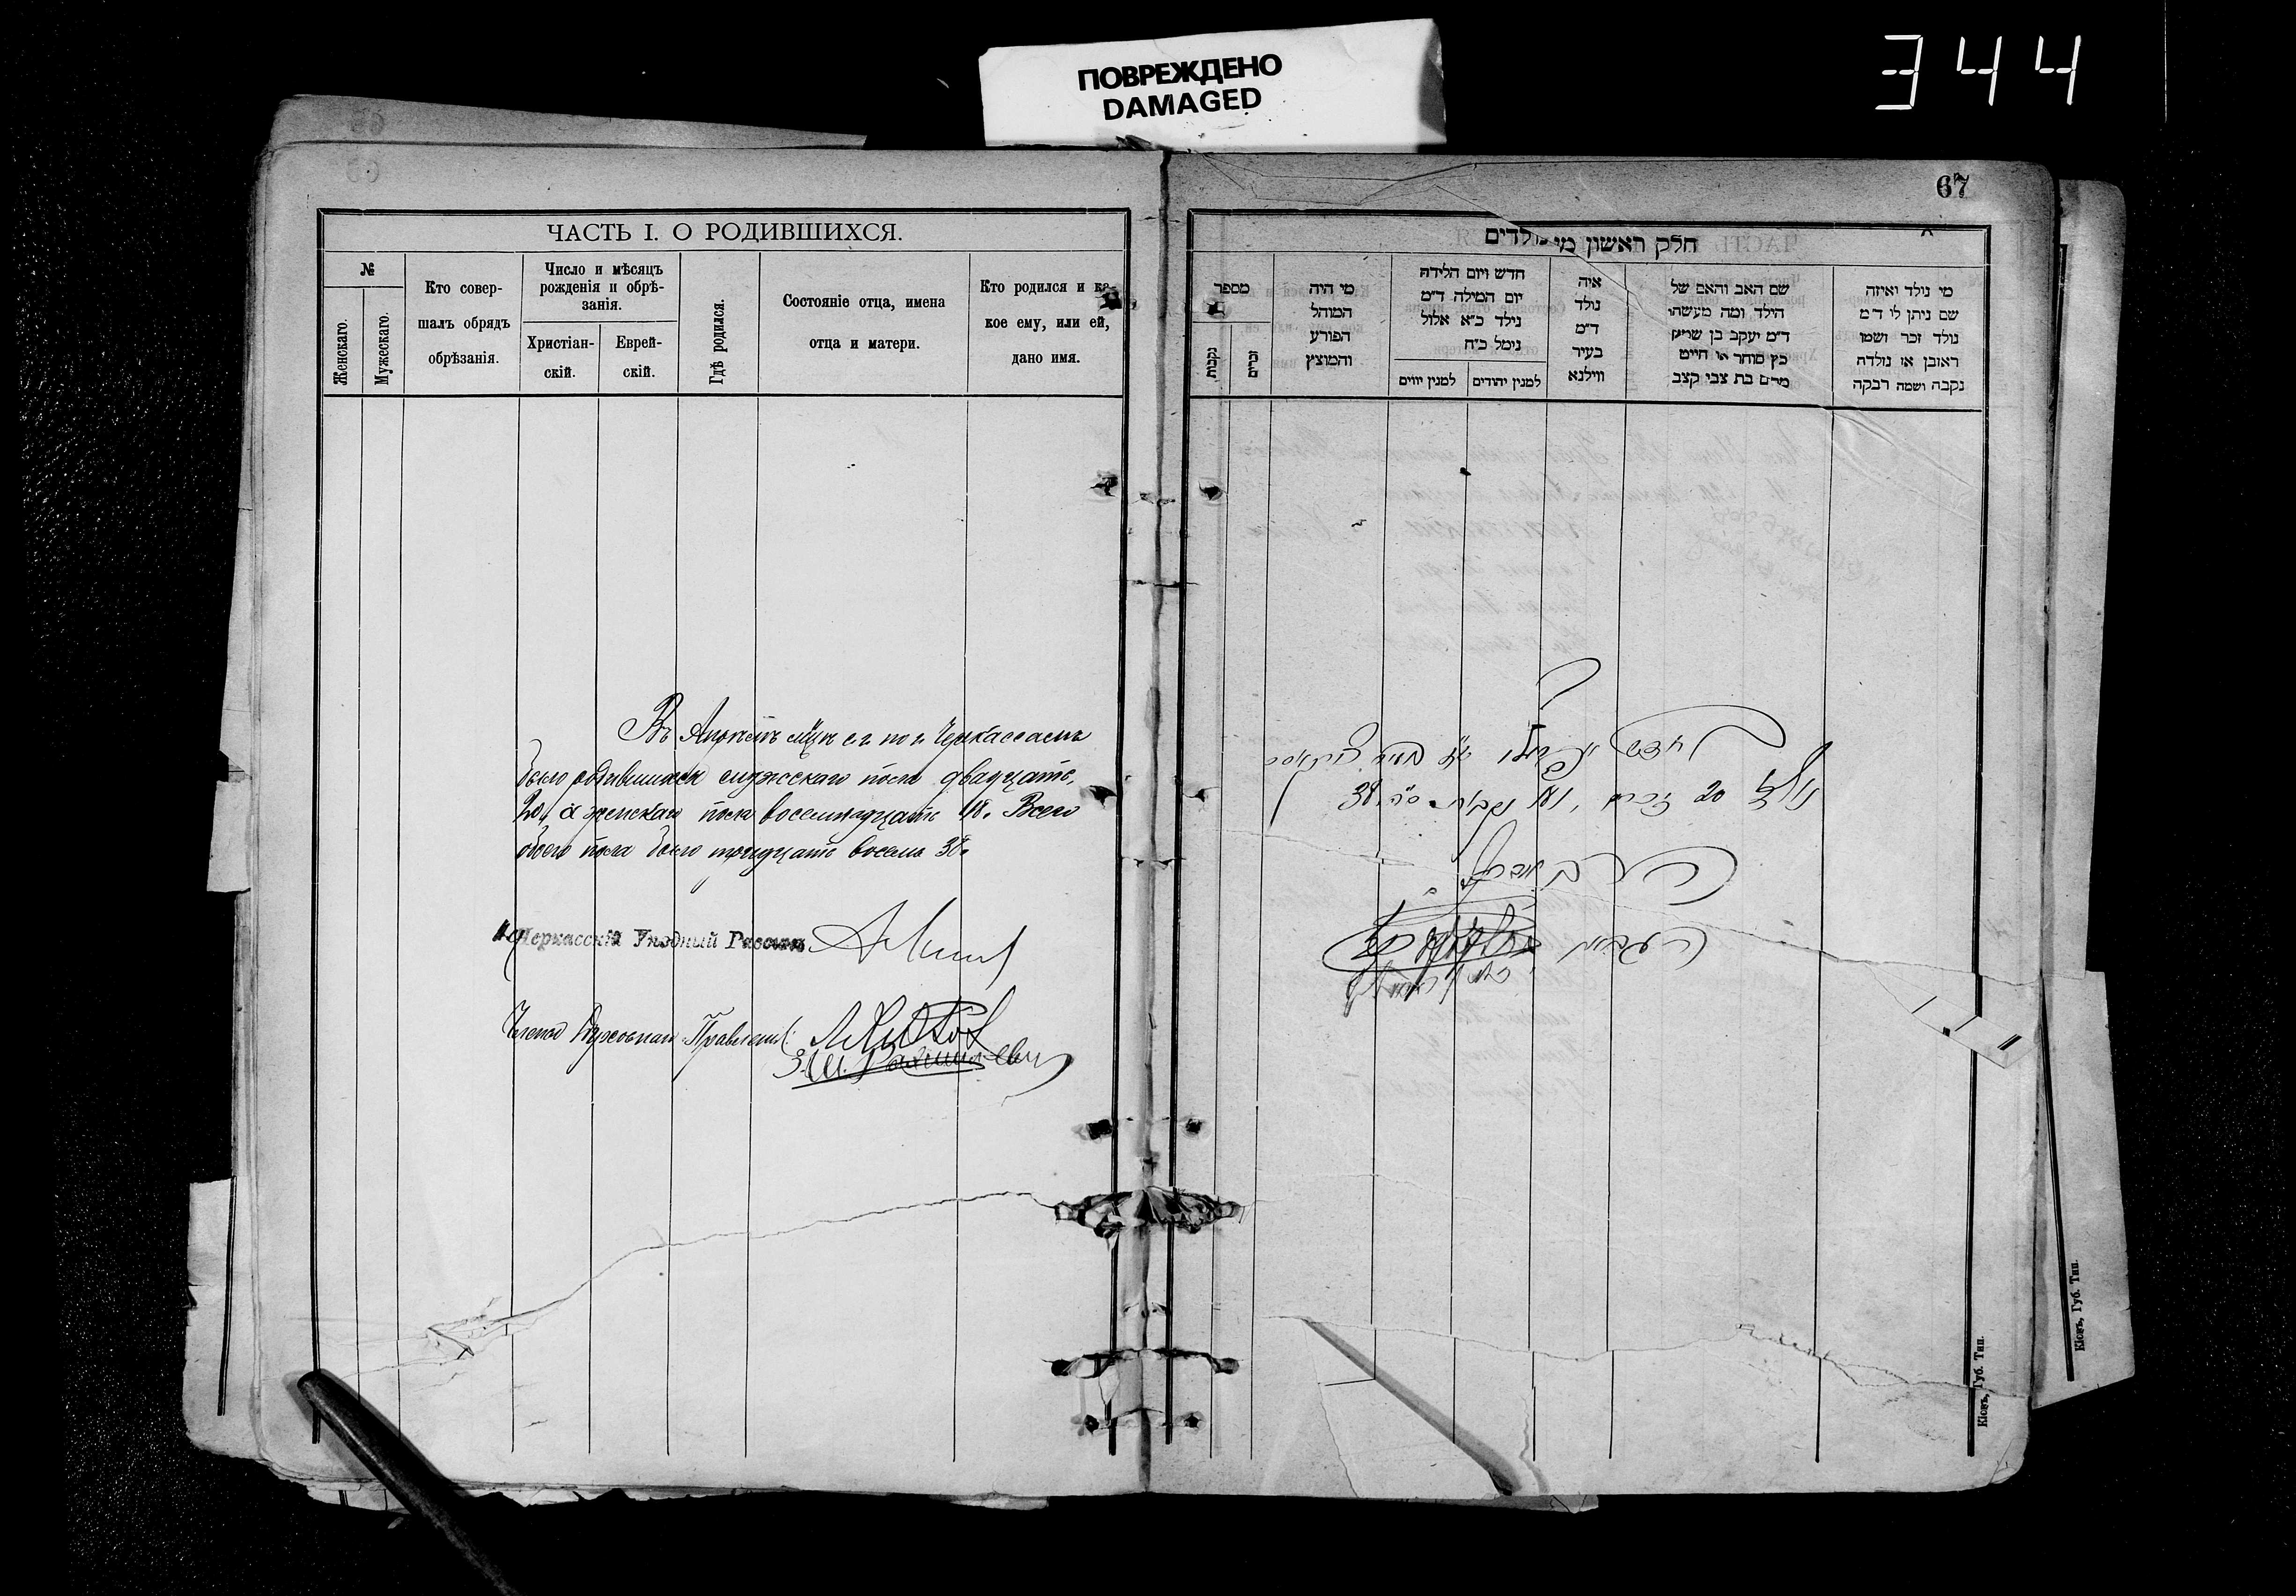 ПОВРЕЖДЕНО
DAMAGED
344
67
ЧАСТЬ I. О РОДИВШИХСЯ.
№
Женскаго.
Мужескаго.
Кто совер-
шалъ обрядъ
обрѣзанія.
Число и мѣсяцъ
рожденія и обрѣ-
занія.
Христіан-
скій.
Еврей-
скій.
Гдѣ родился.
Состояніе отца, имена
отца и матери.
Кто родился и ка-
кое ему, или ей,
дано имя.
Въ мцѣ с. г. по г. Черкассамъ
было родившихся мужскаго пола двадцать,
20, а женскаго пола восемнадцать 18. Всего
обоего пола было тридцать восемь 38.
Черкасскій Уѣздный Раввинъ
Члены Духовнаго Правленія:
חלק ראשון מי
מספר
נקבות
זכרים
מי היה
המוהל
הפורע
והמוצץ
חדש ויום הלידה
יום המילה ד״מ
נילד כ״א אלול
נימל כ״ח
למנין יווים
למנין יהודים
איה
נולד
ד״מ
בעיר
ווילנא
שם האב והאם של
הילד ומה מעשהו
ד״מ יעקב בן שמעון
כץ סוחר או חייט
מרים בת צבי קצב
מי נולד ואיזה
שם ניתן לו ד״מ
נולד זכר ושמו
ראובן או נולדה
נקבה ושמה רבקה
20 זכרים 18 נקבות ס״ה 38
Кіевъ, Губ. Тип.
Кіевъ, Губ. Тип.